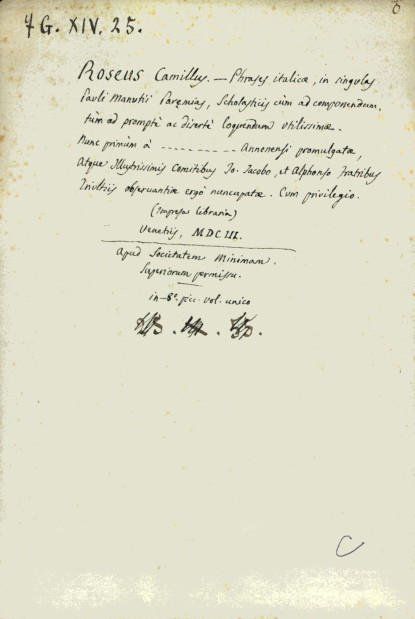 7 G. XIV. 25.
Roseus Camillus. — Phrases italicæ, in singulas
Pauli Manutii Paremias, Scholasticis cùm ad componendum,
tùm ad promptè ac disertè loquendum utilissimæ.
Nunc primùm à - - - - - - - - - - Annonensi promulgatæ,
Atque Illustrissimis Comitibus Jo. Jacobo, et Alphonso fratribus
Trivltiis observantiæ ergò nuncupatæ. Cum privilegio.
(Impresa libraria)
Venetiis, MDCIII.
Apud Societatem Minimam.
Superiorum permissu.
in-8° picc. vol. unico
C